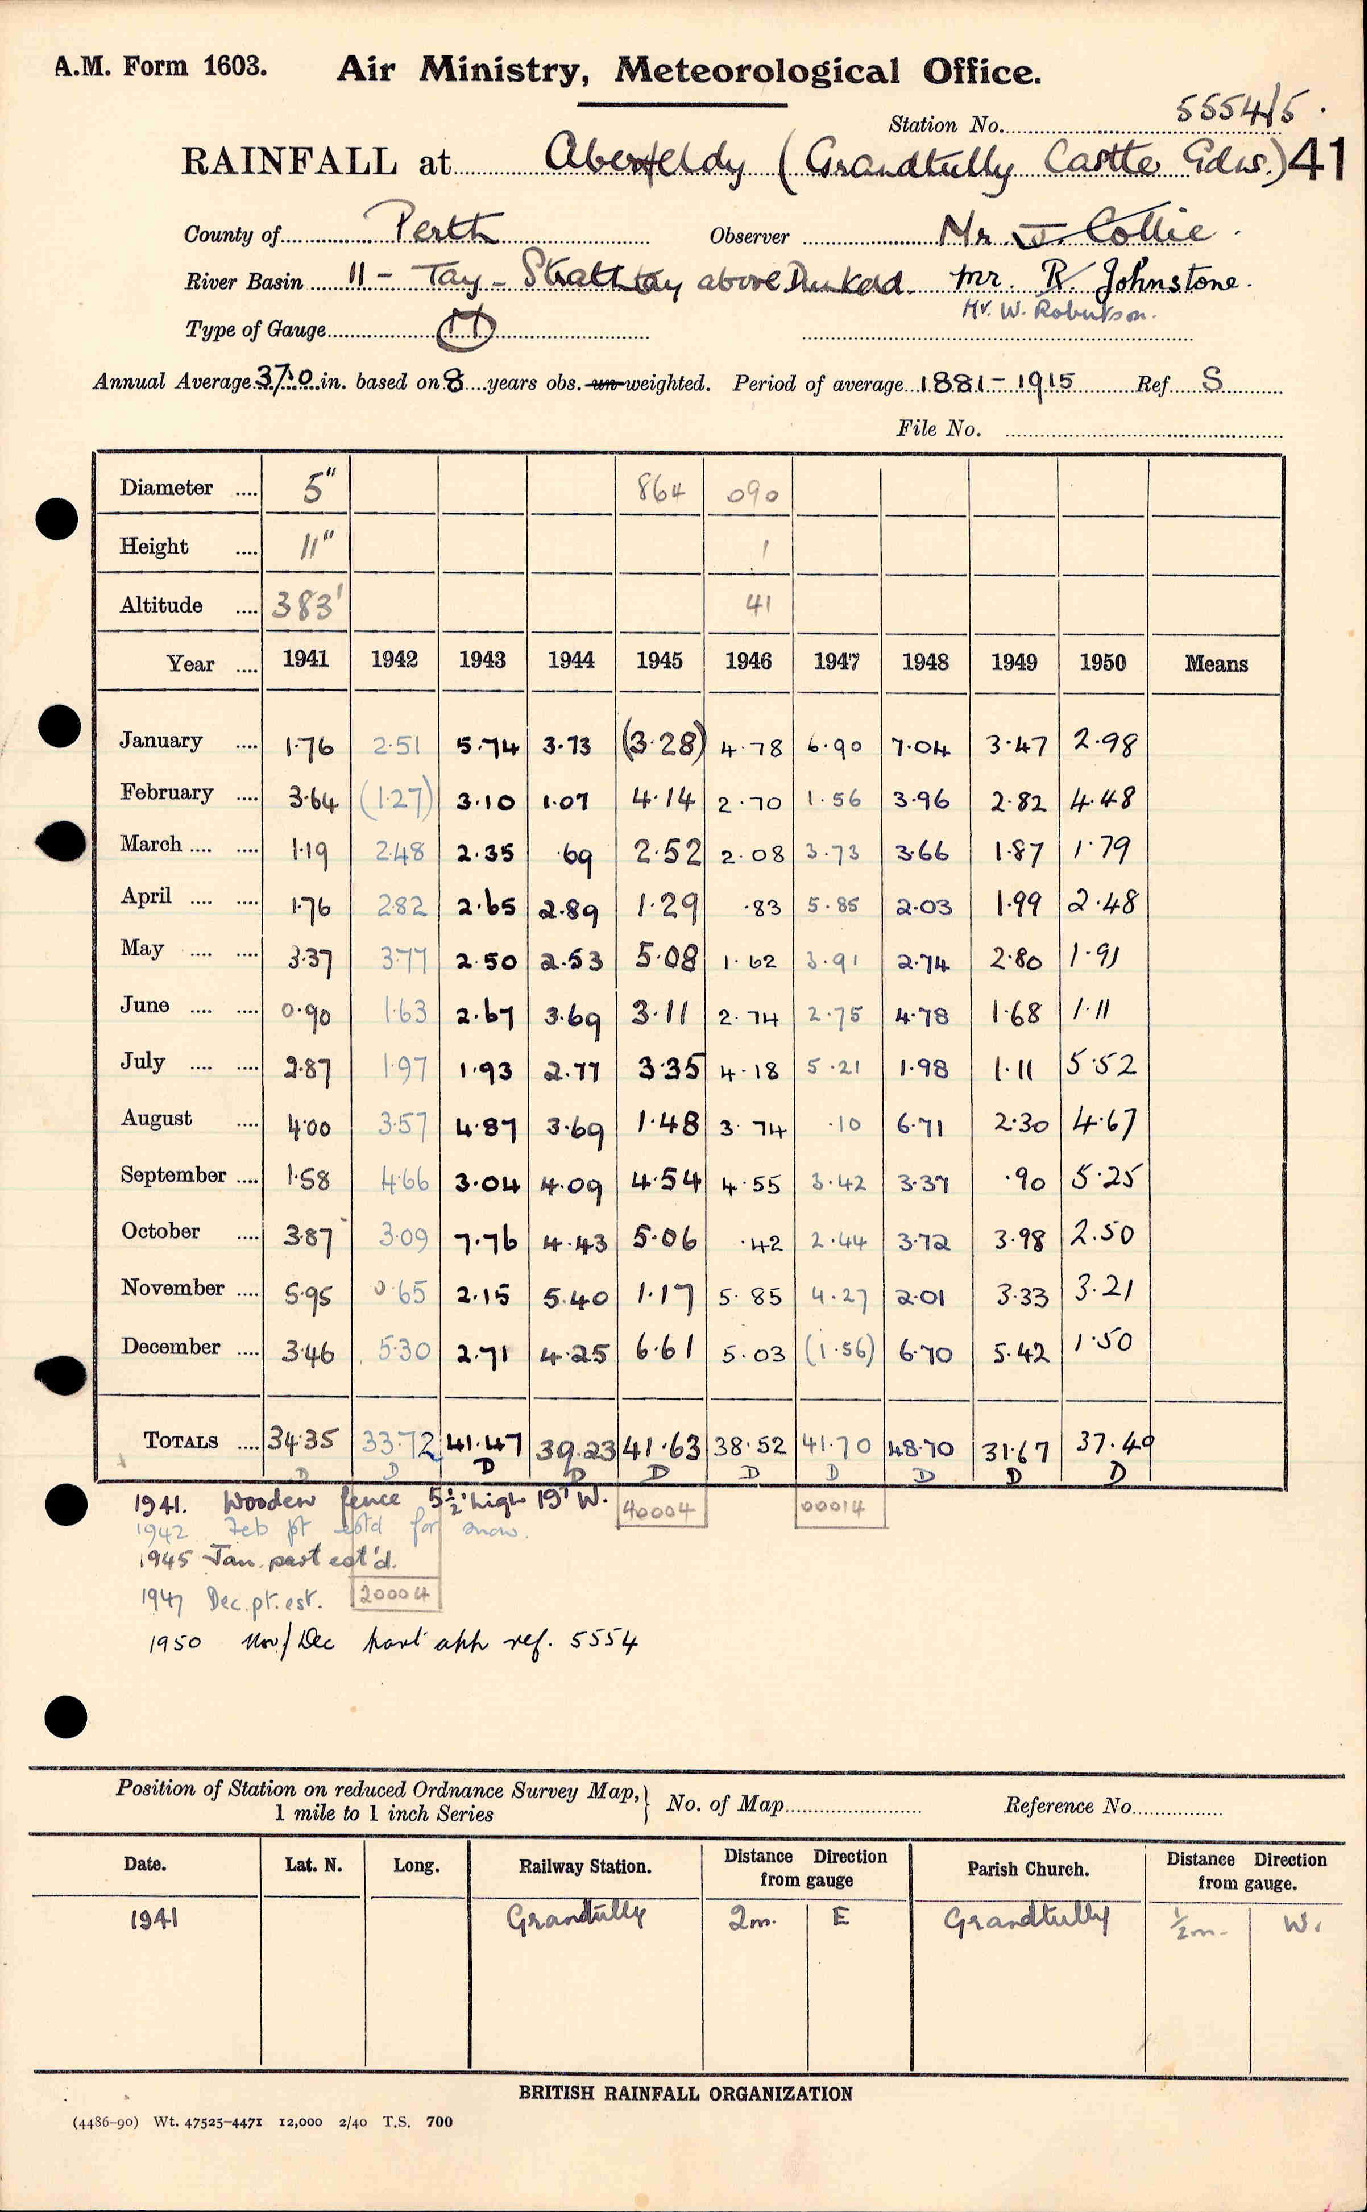 A.M. Form 1603. Air Ministry, Meteorological Office.
Station No. 5554/5.
RAINFALL at Aberfeldy (Grandtully Castle Gdns.) 41
County of Perth Observer Mr J. Collie.
River Basin 11 - Tay - Strathtay above Dunkeld. Mr. R Johnstone.
Mr. W. Robertson.
Type of Gauge M
Annual Average 37.0 in. based on 8 years obs. un-weighted. Period of average 1881-1915 Ref S
File No.
Diameter .... 5" 864 090
Height .... 11" 1
Altitude .... 383' 41
Year .... 1941 1942 1943 1944 1945 1946 1947 1948 1949 1950 Means
January .... 1.76 2.51 5.74 3.73 (3.28) 4.78 6.90 7.04 3.47 2.98
February .... 3.64 (1.27) 3.10 1.07 4.14 2.70 1.56 3.96 2.82 4.48
March .... .... 1.19 2.48 2.35 .69 2.52 2.08 3.73 3.66 1.87 1.79
April .... .... 1.76 2.82 2.65 2.89 1.29 .83 5.85 2.03 1.99 2.48
May .... .... 3.37 3.77 2.50 2.53 5.08 1.62 3.91 2.74 2.80 1.91
June .... .... 0.90 1.63 2.67 3.69 3.11 2.74 2.75 4.78 1.68 1.11
July .... .... 2.87 1.97 1.93 2.77 3.35 4.18 5.21 1.98 1.11 5.52
August .... 4.00 3.57 4.87 3.69 1.48 3.74 .10 6.71 2.30 4.67
September .... 1.58 4.66 3.04 4.09 4.54 4.55 3.42 3.37 .90 5.25
October .... 3.87 3.09 7.76 4.43 5.06 .42 2.44 3.72 3.98 2.50
November .... 5.95 0.65 2.15 5.40 1.17 5.85 4.27 2.01 3.33 3.21
December .... 3.46 5.30 2.71 4.25 6.61 5.03 (1.56) 6.70 5.42 1.50
TOTALS .... 34.35 33.72 41.47 39.23 41.63 38.52 41.70 48.70 31.67 37.40
D D D D D D D D D D
1941. Wooden fence 5½' high 19' W. 40004 00014
1942 Feb pt estd for snow.
1945 Jan. part est'd.
1947 Dec. pt. est. 20004
1950 Nov/Dec part app ref. 5554
Position of Station on reduced Ordnance Survey Map, 1 mile to 1 inch Series } No. of Map Reference No.
Date. Lat. N. Long. Railway Station. Distance Direction from gauge Parish Church. Distance Direction from gauge.
1941 Grandtully 2m. E Grandtully ½m. W.
BRITISH RAINFALL ORGANIZATION
(4486-90) Wt. 47525-4471 12,000 2/40 T.S. 700